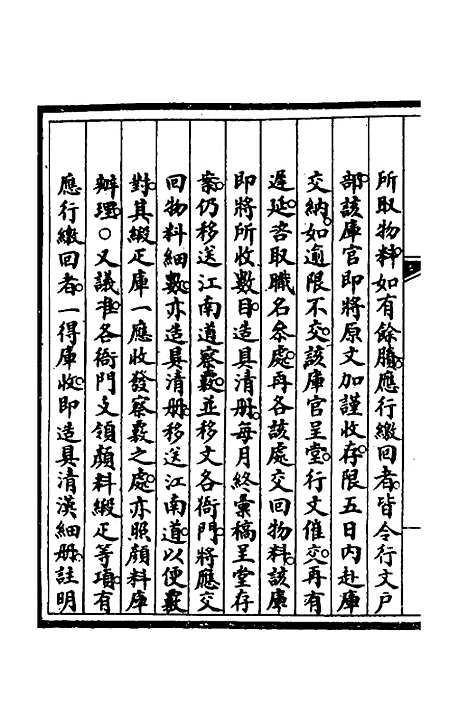 所取物料如有餘賸應行繳回者皆令行文戶
部該庫官即將原文加謹收存限五日內赴庫
交納如逾限不交該庫官呈堂行文催交再有
遲延咨取職名叅處再各該處交回物料該庫
即將所收數目造具清冊每月終彙稿呈堂存
案仍移送江南道察覈並移文各衙門將應交
回物料細數亦造具清冊移送江南道以便覈
對其緞疋庫一應收發察覈之處亦照顏料庫
辦理○又議准各衙門支領顏料緞疋等項有
應行繳回者一得庫收即造具清漢細冊註明